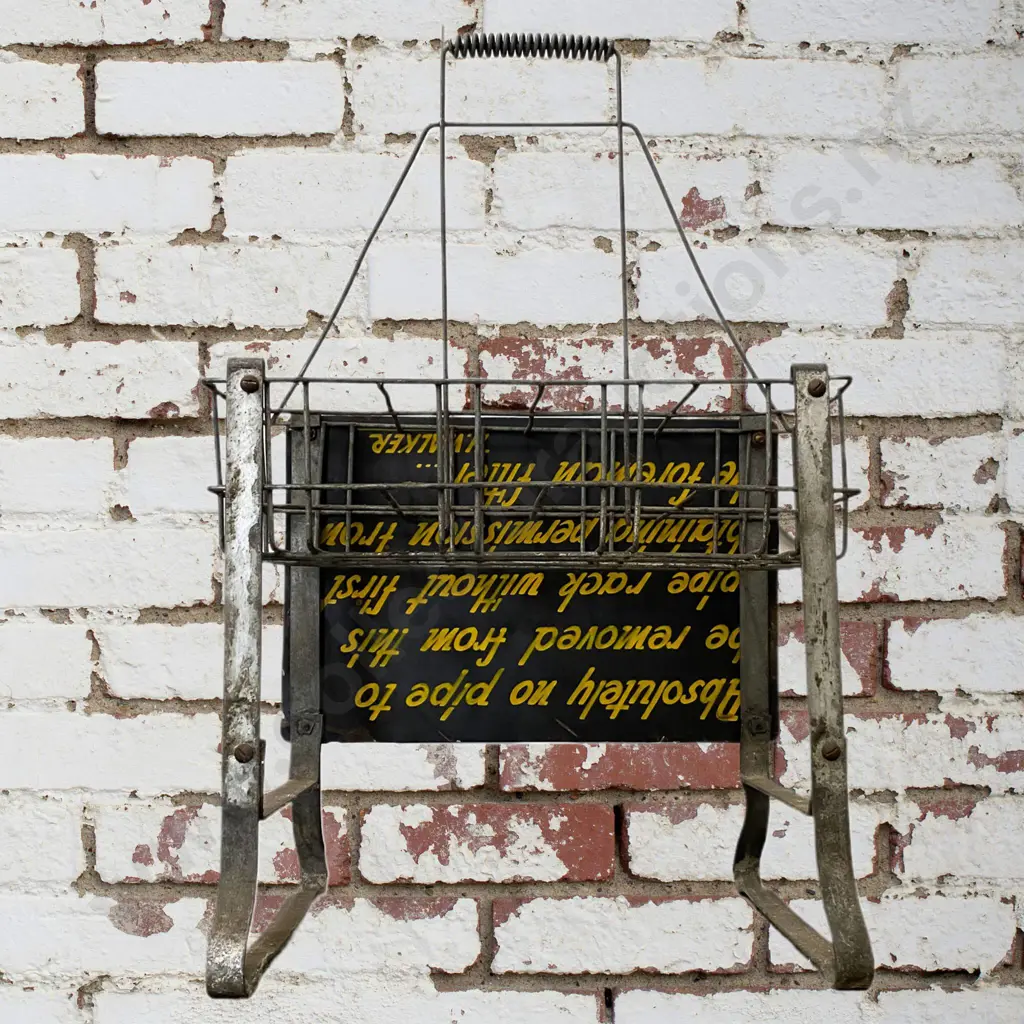 Absolutely no pipe to
be removed from this
pipe rack without first
obtaining permission from
the foreman fitter
... WALKER